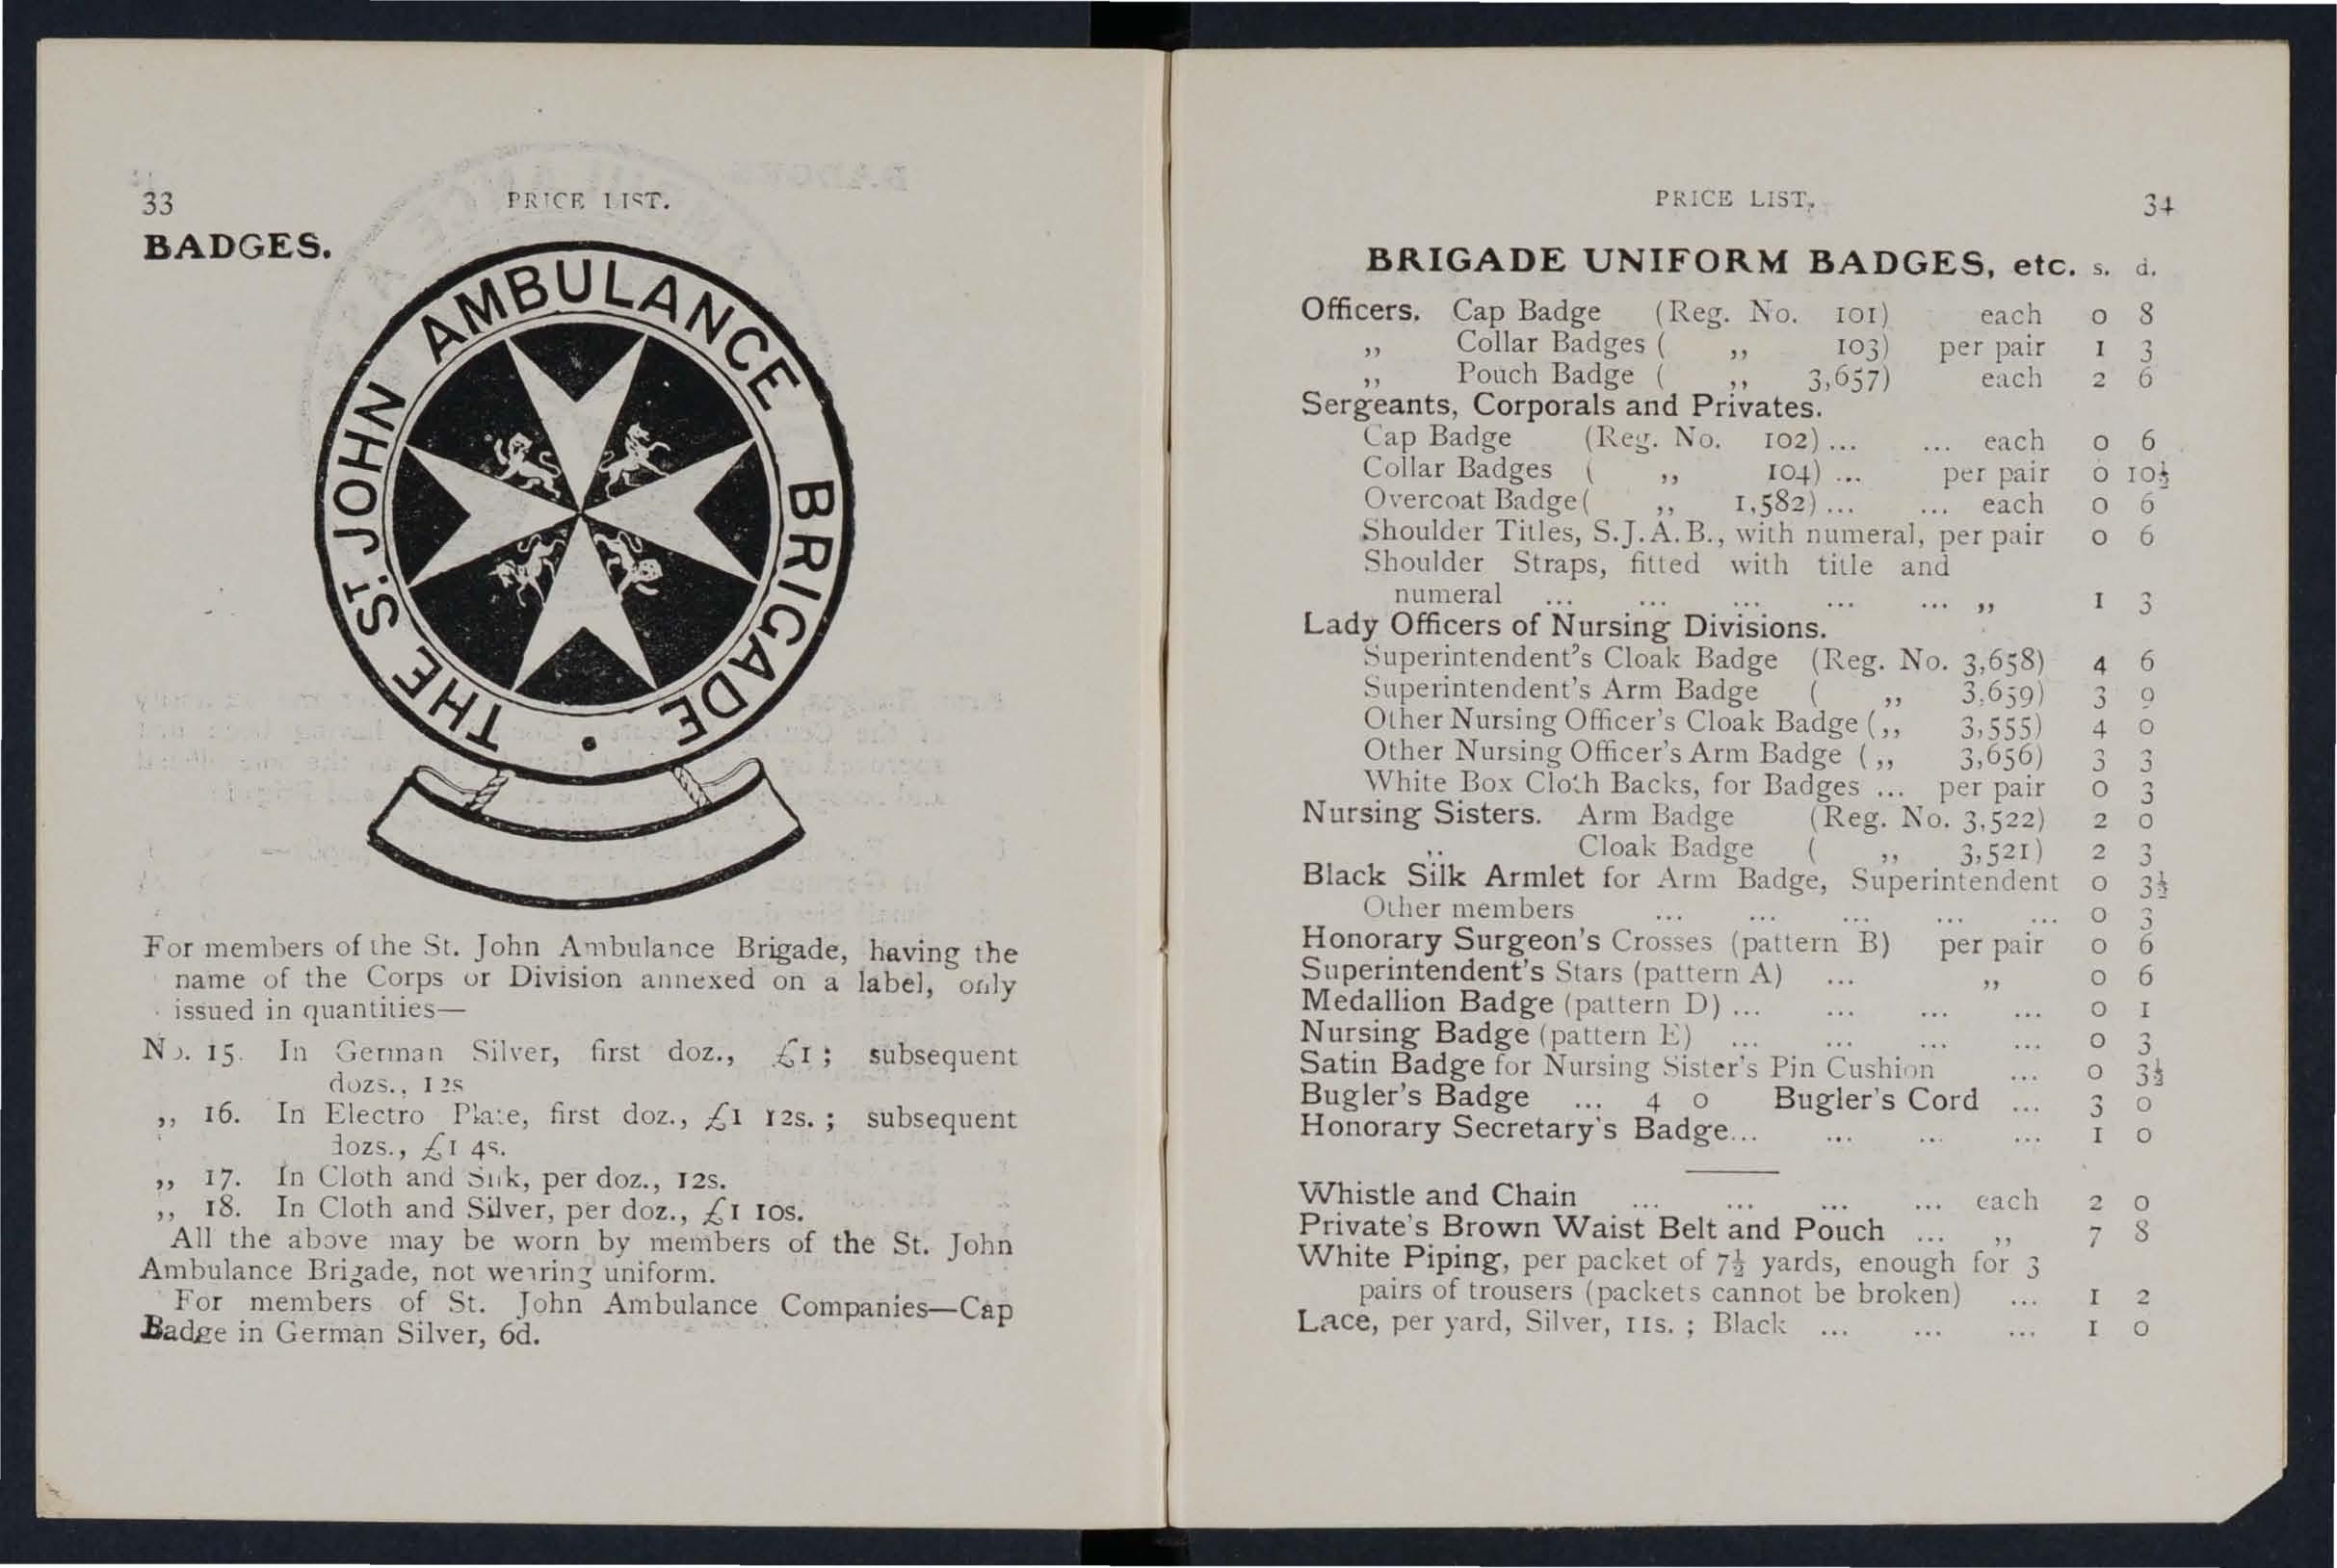 33
PRICE LIST.
BADGES.
THE ST. JOHN AMBULANCE BRIGADE
For members of the St. John Ambulance Brigade, having the
name of the Corps or Division annexed on a label, only
issued in quantities—
No. 15. In German Silver, first doz., £1; subsequent
dozs., 12s
,, 16. In Electro Plate, first doz., £1 12s.; subsequent
dozs., £1 4s.
,, 17. In Cloth and Silk, per doz., 12s.
,, 18. In Cloth and Silver, per doz., £1 10s.
All the above may be worn by members of the St. John
Ambulance Brigade, not wearing uniform.
For members of St. John Ambulance Companies—Cap
Badge in German Silver, 6d.
PRICE LIST.
34
BRIGADE UNIFORM BADGES, etc. s. d.
Officers. Cap Badge (Reg. No. 101) each 0 8
,, Collar Badges ( ,, 103) per pair 1 3
,, Pouch Badge ( ,, 3,657) each 2 6
Sergeants, Corporals and Privates.
Cap Badge (Reg. No. 102) ... ... each 0 6
Collar Badges ( ,, 104) ... per pair 0 10½
Overcoat Badge ( ,, 1,582) ... ... each 0 6
Shoulder Titles, S.J.A.B., with numeral, per pair 0 6
Shoulder Straps, fitted with title and
numeral ... ... ... ... ... ,, 1 3
Lady Officers of Nursing Divisions.
Superintendent's Cloak Badge (Reg. No. 3,658) 4 6
Superintendent's Arm Badge ( ,, 3,659) 3 9
Other Nursing Officer's Cloak Badge ( ,, 3,555) 4 0
Other Nursing Officer's Arm Badge ( ,, 3,656) 3 3
White Box Cloth Backs, for Badges ... per pair 0 3
Nursing Sisters. Arm Badge (Reg. No. 3,522) 2 0
,, Cloak Badge ( ,, 3,521) 2 3
Black Silk Armlet for Arm Badge, Superintendent 0 3½
Other members ... ... ... ... ... 0 3
Honorary Surgeon's Crosses (pattern B) per pair 0 6
Superintendent's Stars (pattern A) ... ,, 0 6
Medallion Badge (pattern D) ... ... ... ... 0 1
Nursing Badge (pattern E) ... ... ... ... 0 3
Satin Badge for Nursing Sister's Pin Cushion ... 0 3½
Bugler's Badge ... 4 0 Bugler's Cord ... 3 0
Honorary Secretary's Badge... ... ... ... 1 0
Whistle and Chain ... ... ... ... each 2 0
Private's Brown Waist Belt and Pouch ... ,, 7 8
White Piping, per packet of 7½ yards, enough for 3
pairs of trousers (packets cannot be broken) ... 1 2
Lace, per yard, Silver, 11s.; Black ... ... ... 1 0